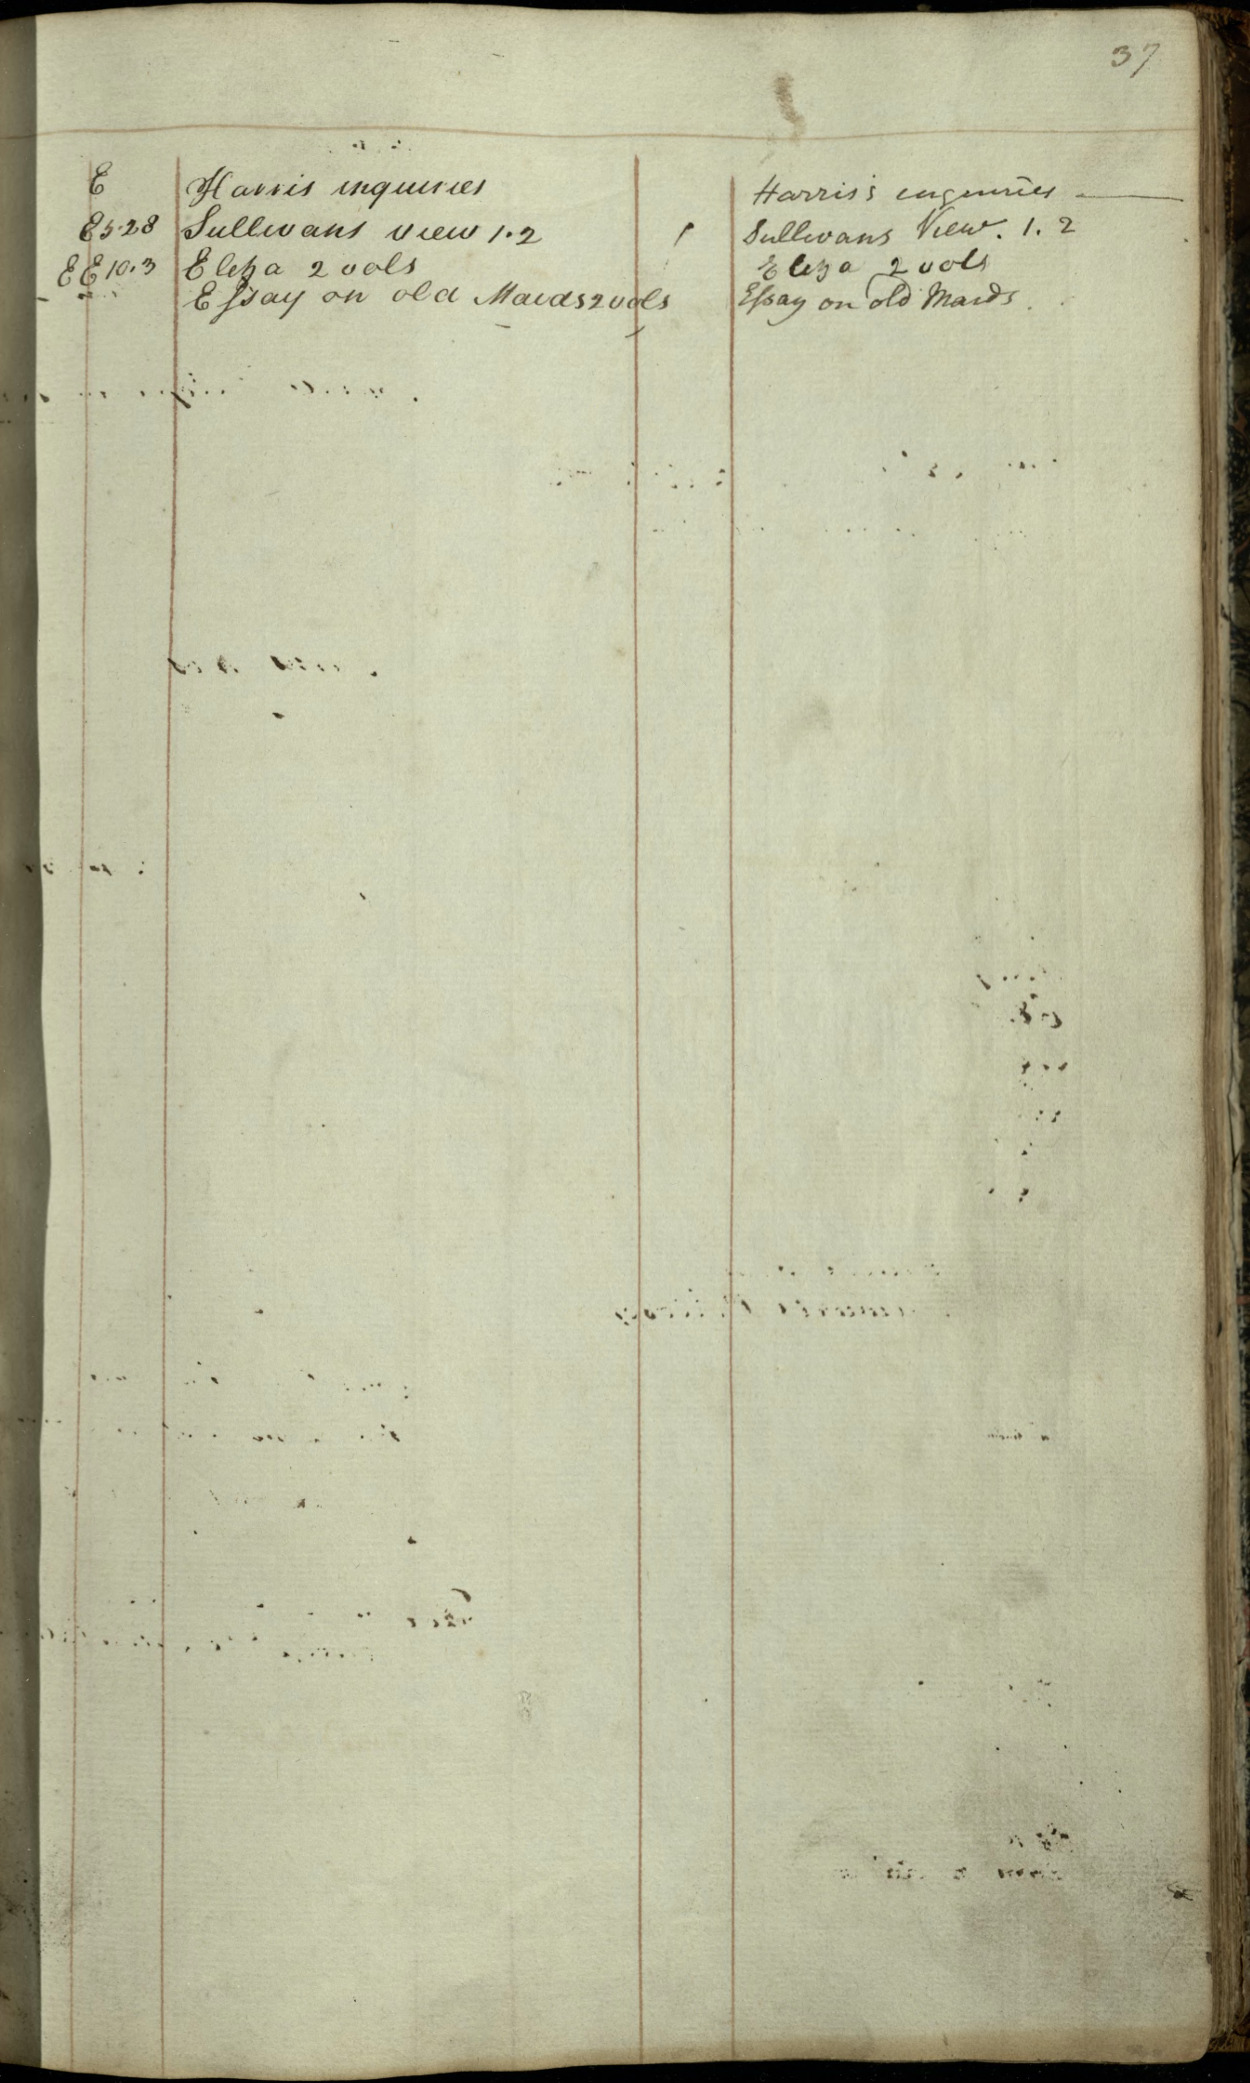 37
E Harris inquiries Harris's enquiries
E 5.28 Sullivans view 1.2 Sullivans View. 1. 2
E E 10.3 Eliza 2 vols Eliza 2 vols
Eſsay on old Maids 2 vols Eſsay on old Maids